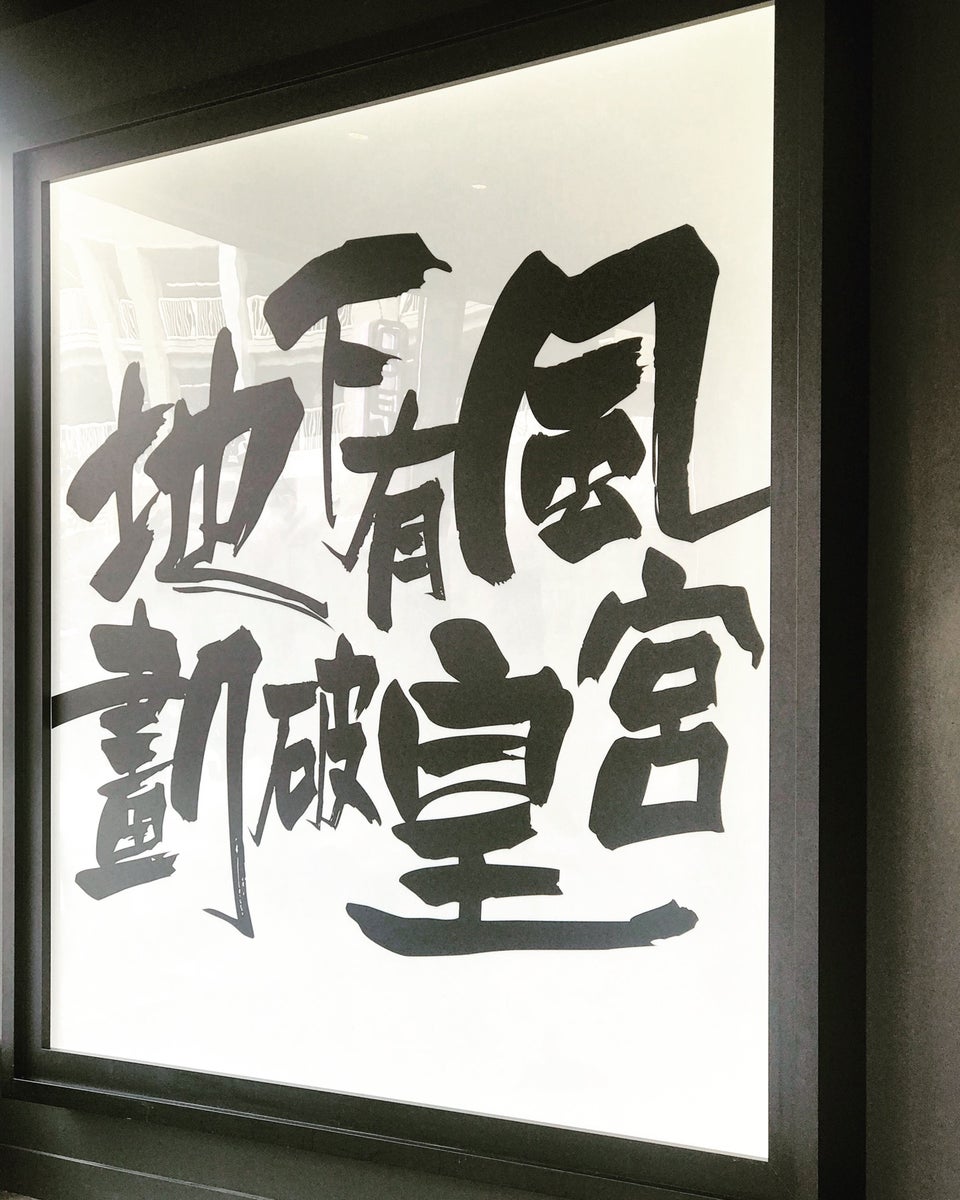 地下有風
劃破皇宮